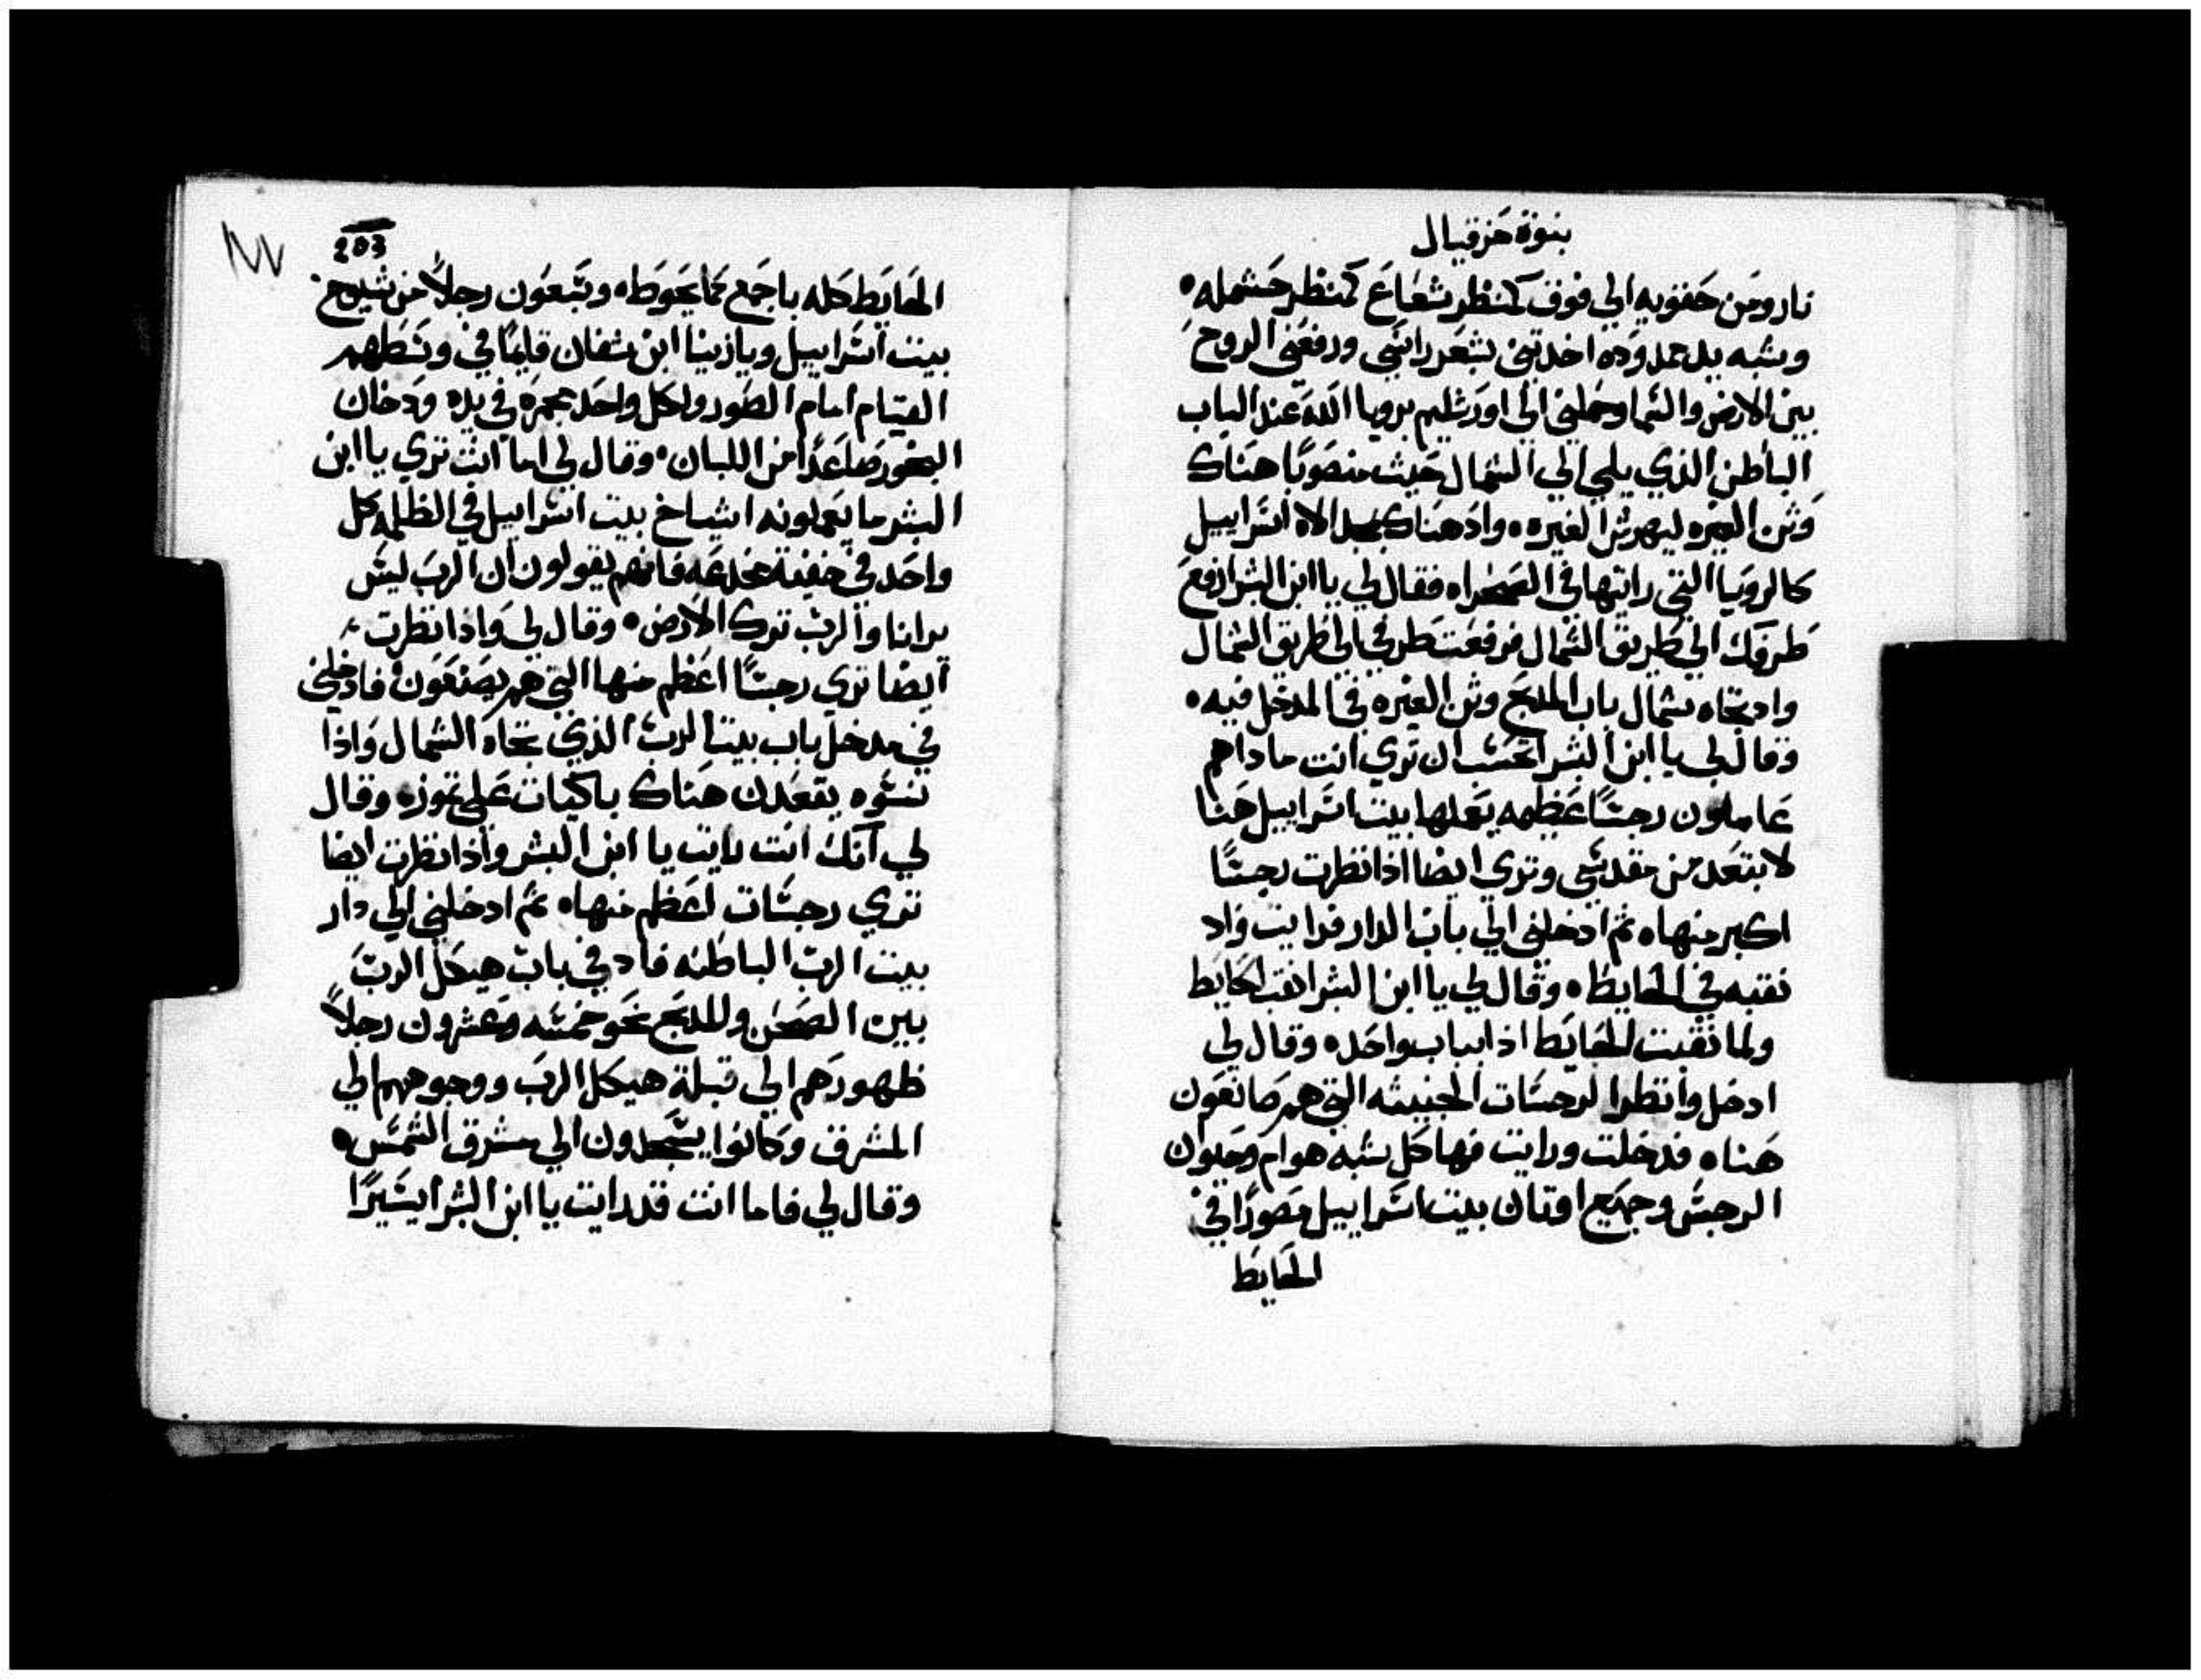 بنوة حزقيال
نار ومن حقويه الي فوق كمنظر شعاع كمنظر حشمله
وشبه يد ممدوده اخدتني بشعر راسي ورفعني الروح
بين الارض والسما وحملني الي اورشليم برويا الله عند الباب
الباطن الذي يلي الي الشمال حيث منصوبا هناك
وثن الغيره ليهرش الغيره واد هناك مجد الاه اسراييل
كالرويا التي راتها في الصحراه فقال لي يا ابن البشر ارفع
طرفك الي طريق الشمال فرفعت طرفي الي طريق الشمال
واد تجاه شمال باب المدبح وثن الغيره في المدخل فيه
وقال لي يا ابن البشر اتحسب ان تري انت ماداهم
عاملون رجسا عظيمه يعملها بيت اسراييل هنا
لابتعد من مقدسي وتري ايضا اذا نظرت رجسا
اكبر منهاه ثم ادخلني الي باب الدار فرايت واد
نقبه في الحايطه وقال لي يا ابن البشر انقب الحايط
ولما نقبت للحايط اذا بباب واحده وقال لي
ادخل وانظر الرجسات الخبيثه التي هم صانعون
هناه فدخلت ورايت فها كل شبه هوام وحيوان
الرجس وجميع اوتان بيت اسراييل مصورا في
الحايط
203
الحايط كله باجمع مما يحوطه وسبعون رجلا من شيوخ
بيت اسراييل ويازينا ابن شفان قايما في وسطهم
القيام امام الصور ولكل واحد مجمره في يده ودخان
البخور صاعدا من اللبان وقال لي اما انت تري يا ابن
البشر ما يعملونه اشياخ بيت اسراييل في الظلمه كل
واحد في خفية مخدعه فانهم يقولون ان الرب ليس
يرانا والرب ترك الارض وقال لي واذا نظرت
ايضا تري رجسا اعظم منها التي هم يصنعون فادخلني
في مدخل باب بيت الرب الذي تجاه الشمال واذا
نسوه يقعدن هناك باكيات علي تموزه وقال
لي انك انت رايت يا ابن البشر واذا نظرت ايضا
تري رجسات اعظم منهاه ثم ادخلني الي دار
بيت الرب الباطنه فاد في باب هيكل الرب
بين الصحن وللمدبح نحو خمسه وعشرون رجلا
ظهورهم الي قبلة هيكل الرب ووجوههم الي
المشرق وكانوا يسجدون الي مشرق الشمس
وقال لي فاما انت قد رايت يا ابن البشر ايسيرا